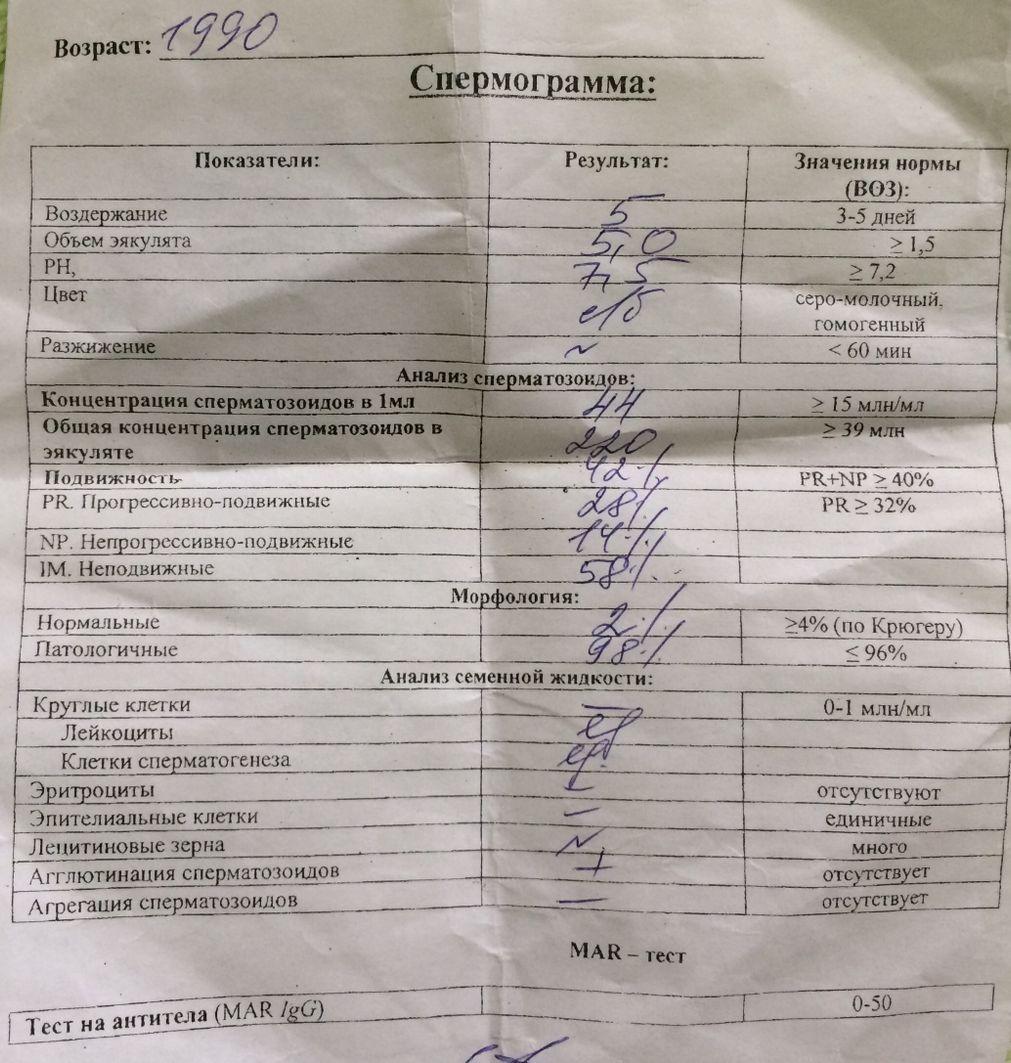 Возраст: 1990
Спермограмма:
Показатели: Результат: Значения нормы (ВОЗ):
Воздержание 5 3-5 дней
Объем эякулята 5,0 ≥ 1,5
PH, 7,5 ≥ 7,2
Цвет с/б серо-молочный, гомогенный
Разжижение ~ < 60 мин
Анализ сперматозоидов:
Концентрация сперматозоидов в 1мл 44 ≥ 15 млн/мл
Общая концентрация сперматозоидов в эякуляте 220 ≥ 39 млн
Подвижность 42% PR+NP ≥ 40%
PR. Прогрессивно-подвижные 28% PR ≥ 32%
NP. Непрогрессивно-подвижные 14%
IM. Неподвижные 58%
Морфология:
Нормальные 2% ≥4% (по Крюгеру)
Патологичные 98% ≤ 96%
Анализ семенной жидкости:
Круглые клетки — 0-1 млн/мл
Лейкоциты ед
Клетки сперматогенеза ед.
Эритроциты – отсутствуют
Эпителиальные клетки – единичные
Лецитиновые зерна ~ много
Агглютинация сперматозоидов + отсутствует
Агрегация сперматозоидов — отсутствует
MAR – тест
Тест на антитела (MAR IgG) 0-50